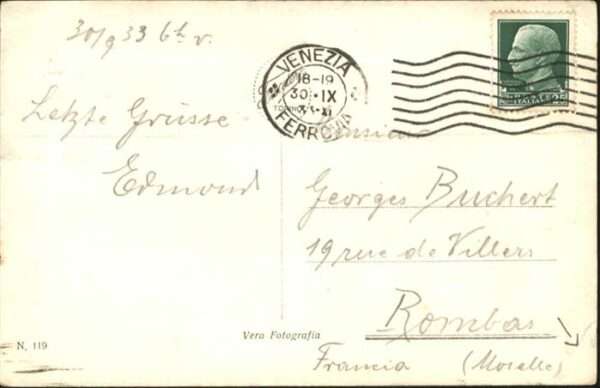 30/9 33 6h v.
Letzte Grüsse
Edmond
VENEZIA
18-19
30·IX
FERROVIA
ITALIA
Monsieur
Georges Buchert
19 rue de Villers
Rombas
Francia (Moselle)
Vera Fotografia
N. 119